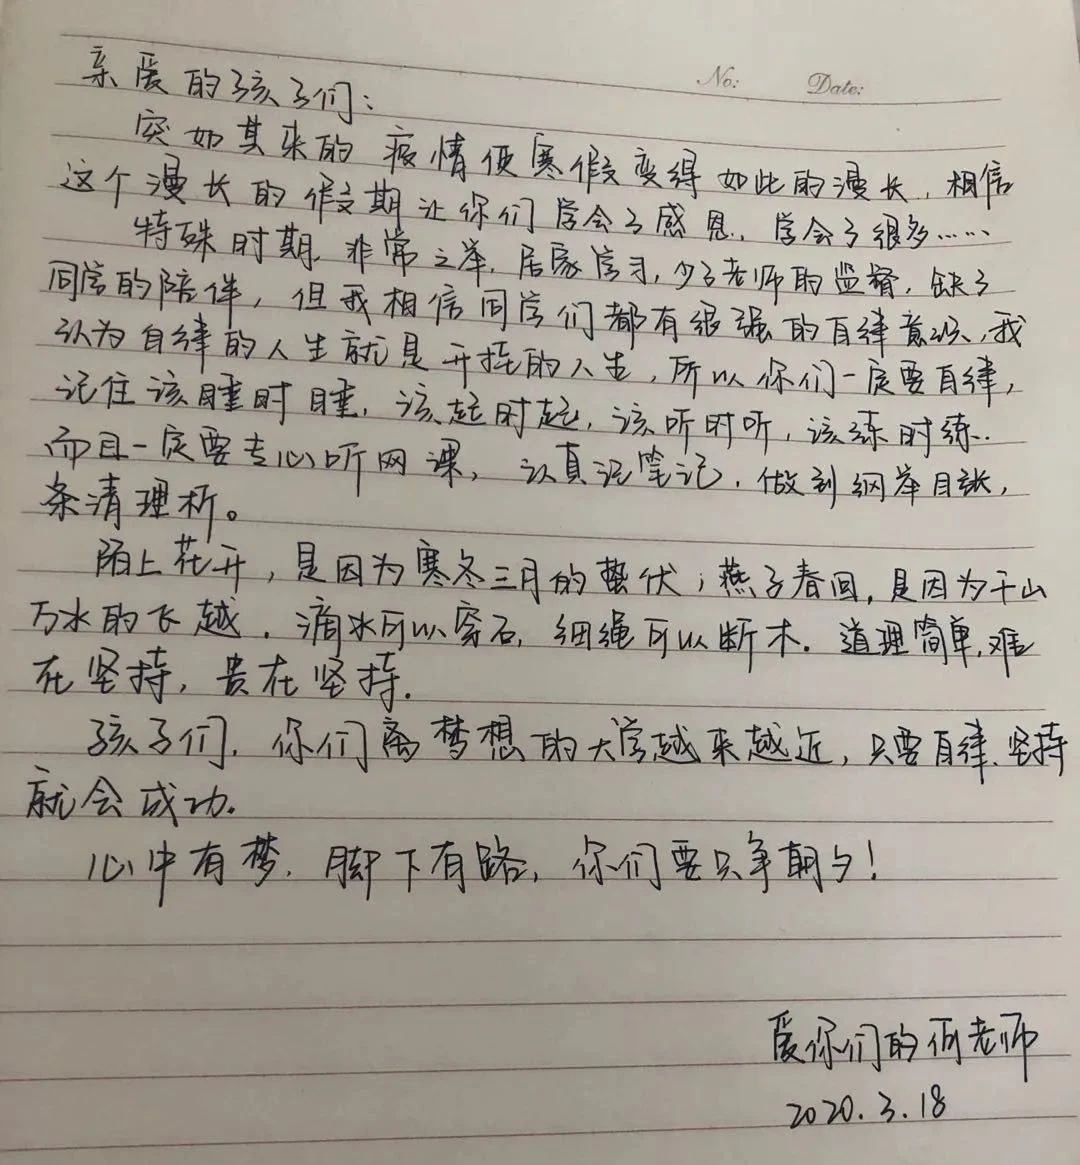 No:    Date:
亲爱的孩子们：
突如其来的疫情使寒假变得如此的漫长，相信
这个漫长的假期让你们学会了感恩，学会了很多……
特殊时期，非常之举，居家学习，少了老师的监督，缺了
同学的陪伴，但我相信同学们都有很强的自律意识，我
认为自律的人生就是开挂的人生，所以你们一定要自律，
记住该睡时睡，该起时起，该听时听，该练时练.
而且一定要专心听网课，认真记笔记，做到纲举目张，
条清理析。
陌上花开，是因为寒冬三月的蛰伏；燕子春回，是因为千山
万水的飞越．滴水可以穿石，细绳可以断木．道理简单，难
在坚持，贵在坚持．
孩子们，你们离梦想的大学越来越近，只要自律、坚持
就会成功．
心中有梦，脚下有路，你们要只争朝夕！
爱你们的何老师
2020.3.18